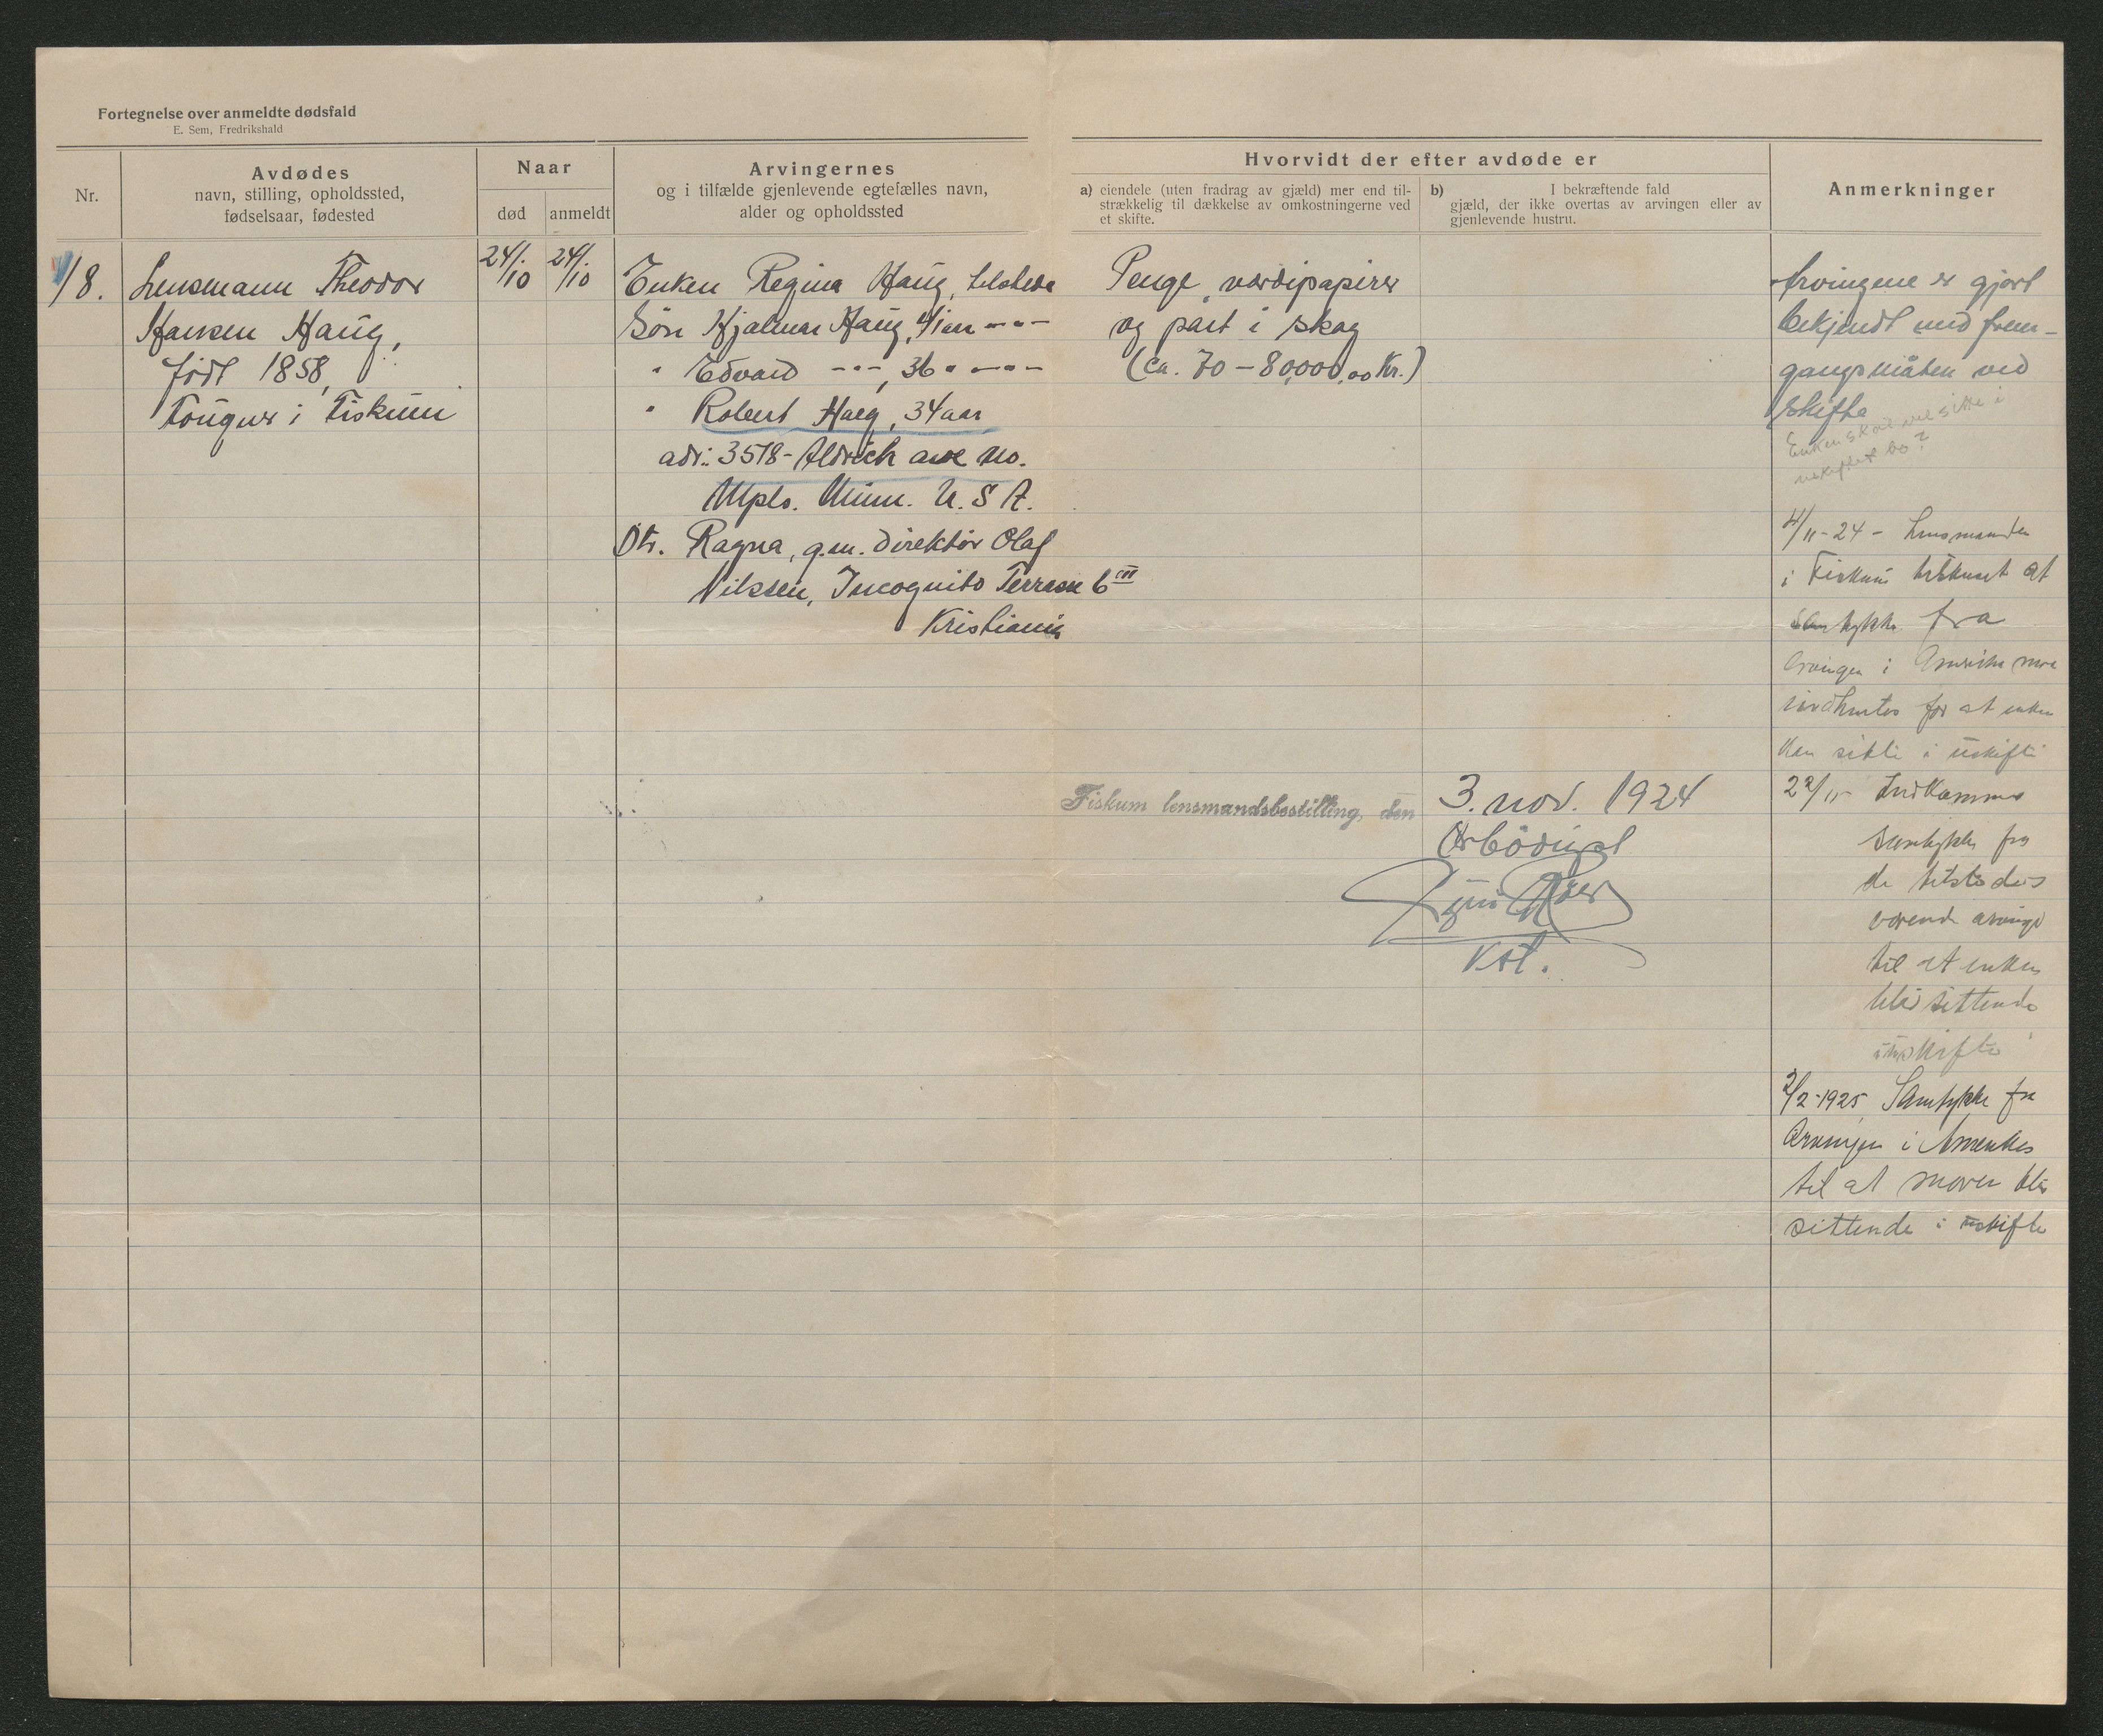 Fortegnelse over anmeldte dødsfald
E. Sem, Fredrikshald
Nr.
Avdødes
navn, stilling, opholdssted,
fødselsaar, fødested
Naar
død
anmeldt
Arvingernes
og i tilfælde gjenlevende egtefælles navn,
alder og opholdssted
Hvorvidt der efter avdøde er
a) eiendele (uten fradrag av gjæld) mer end til-
strækkelig til dækkelse av omkostningerne ved
et skifte.
b) I bekræftende fald
gjæld, der ikke overtas av arvingen eller av
gjenlevende hustru.
Anmerkninger
8.
Lensmann Theodor
Hansen Haug,
født 1858,
Fougner i Fiskum
24/10
24/10
Enken Regina Haug, tilstede
Søn Hjalmar Haug, 41 aar -"-
" Edvard -"-, 36 " -"-
" Robert Haug, 34 aar
adr.: 3518 - Aldrich ave no.
Mpls. Minn. U.S.A.
Dtr. Ragna, g.m. direktør Olaf
Nilssen, Incognito Terrasse 6 III
Kristiania
Penge, værdipapirer
og part i skog
(ca. 70 - 80,000,00 Kr.)
Fiskum lensmandsbestilling, den 3. nov. 1924
Ærbødigst
Kst.
Arvingene er gjort
bekjendt med frem-
gangsmåten ved
skifte
Enken skal vel sitte i
uskiftet bo?
4/11-24 - Lensmanden
i Fiskum tilskrevet at
samtykke fra
arvingen i Amerika maa
indhentes før at enken
kan sitte i uskifte
22/11 - Indkommet
samtykke fra
de tilstede-
værende arvinger
til at enken
blir sittende
i uskifte
2/2-1925 Samtykke fra
Arvingen i Amerika
til at moren blir
sittende i uskifte